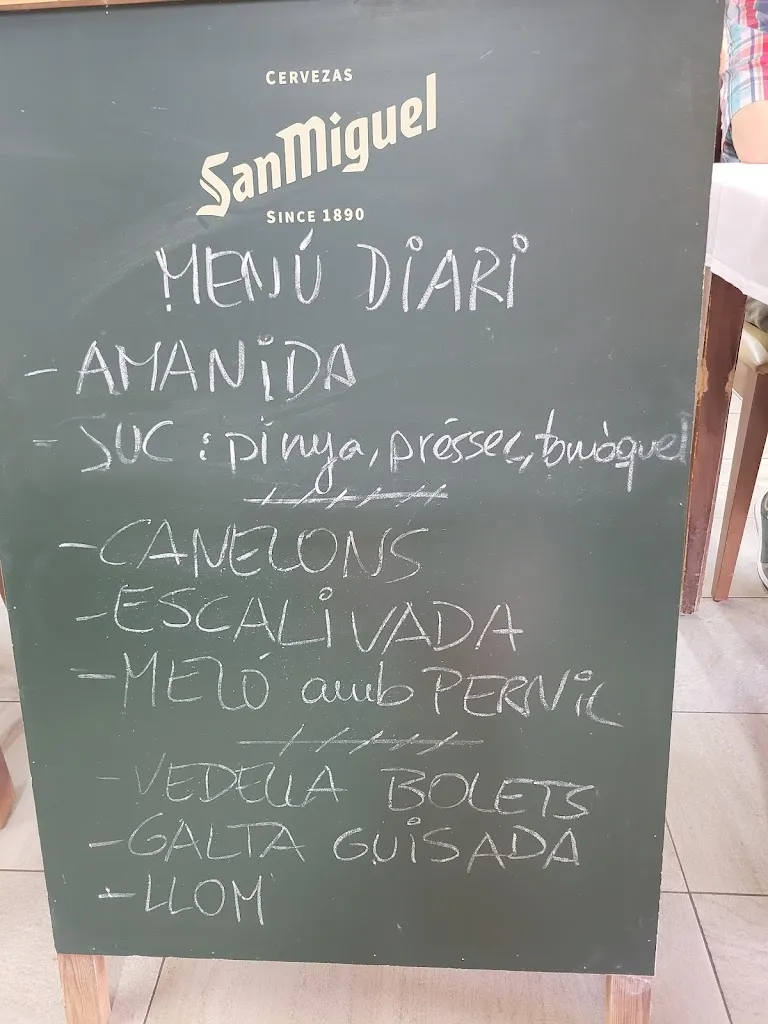 CERVEZAS
SanMiguel
SINCE 1890
MENÚ DIARI
- AMANIDA
- SUC : pinya, préssec, tomàquet
- CANELONS
- ESCALIVADA
- MELÓ amb PERNIL
- VEDELLA BOLETS
- GALTA GUISADA
- LLOM